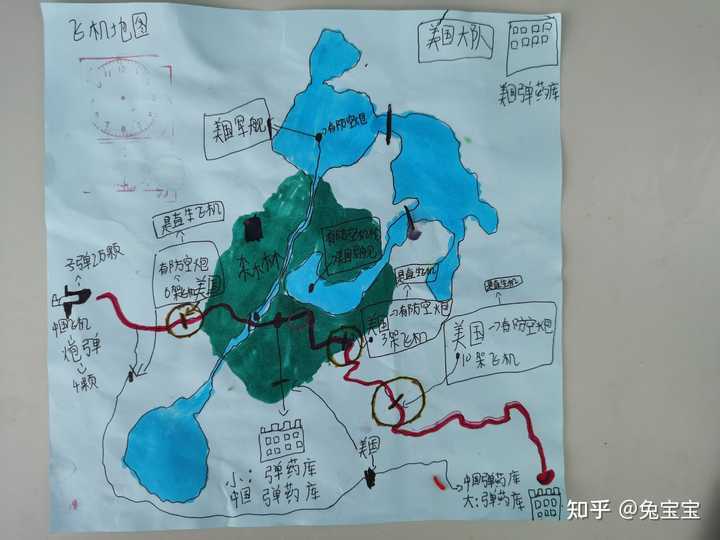 飞机地图
美国大队
美国弹药库
美国军舰
有防空炮
是直升飞机
子弹2万颗
有防空炮
6架飞机
美国
森林
有防空
是直升飞机
美国→有防空炮
3架飞机
是直升机
美国→有防空炮
10架飞机
中国飞机
炮弹
4颗
小:弹药库
中国弹药库
美国
中国弹药库
大:弹药库
知乎 @兔宝宝